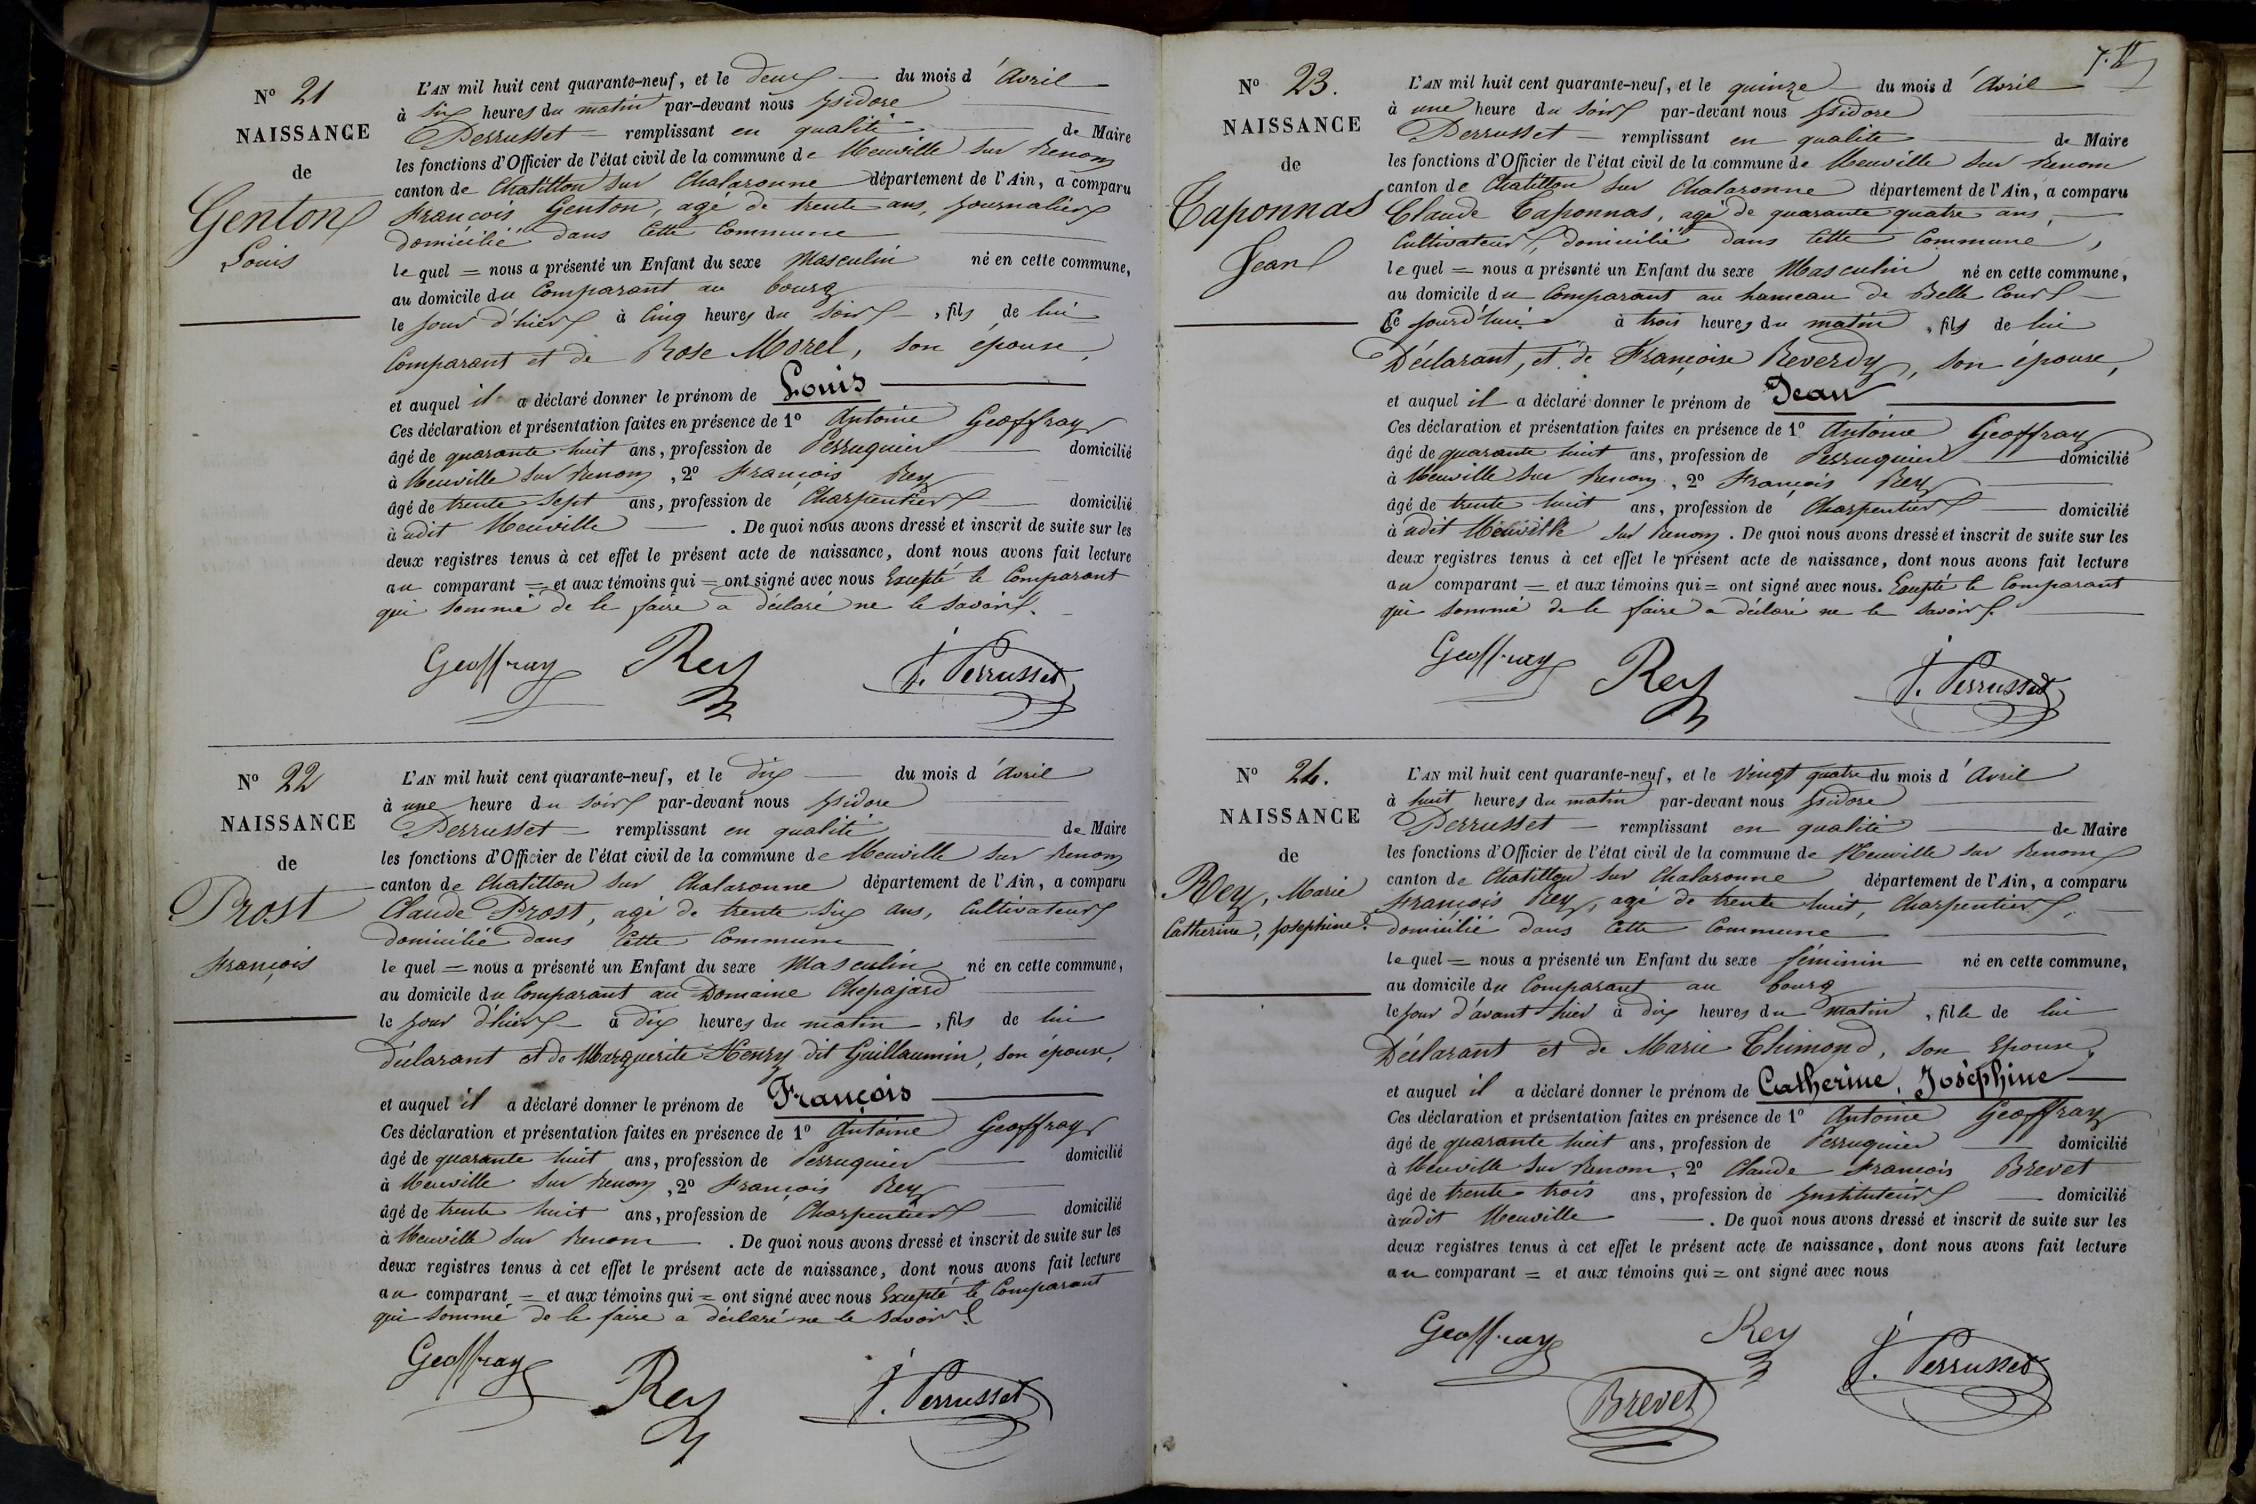 N° 21
NAISSANCE
de
Genton
Louis
L'AN mil huit cent quarante-neuf, et le deux du mois d'Avril
à six heures du matin par-devant nous Isidore
Perrusset = remplissant en qualité de Maire
les fonctions d'Officier de l'état civil de la commune de Neuville sur Renom
canton de Chatillon sur Chalaronne département de l'Ain, a comparu
François Genton, agé de trente ans, journalier
domicilié dans cette Commune
lequel = nous a présenté un Enfant du sexe Masculin né en cette commune,
au domicile du Comparant au bourg
le jour d'hier à Cinq heures du Soir, fils de lui
Comparant et de Rose Morel, son épouse,
et auquel il a déclaré donner le prénom de Louis
Ces déclaration et présentation faites en présence de 1° Antoine Geoffray
âgé de quarante huit ans, profession de Perruquier domicilié
à Neuville sur Renom, 2° François Rey
âgé de trente sept ans, profession de Charpentier domicilié
à udit Neuville . De quoi nous avons dressé et inscrit de suite sur les
deux registres tenus à cet effet le présent acte de naissance, dont nous avons fait lecture
au comparant = et aux témoins qui = ont signé avec nous Excepté le Comparant
qui sommé de le faire a déclaré ne le savoir.
Geoffray Rey J. Perrusset
N° 22
NAISSANCE
de
Prost
François
L'AN mil huit cent quarante-neuf, et le dix du mois d'Avril
à une heure du soir par-devant nous Isidore
Perrusset = remplissant en qualité de Maire
les fonctions d'Officier de l'état civil de la commune de Neuville sur Renom
canton de Chatillon sur Chalaronne département de l'Ain, a comparu
Claude Prost, agé de trente six ans, Cultivateur
domicilié dans Cette Commune
lequel = nous a présenté un Enfant du sexe Masculin né en cette commune,
au domicile du Comparant au Domaine Chepajard
le jour d'hier à dix heures du matin, fils de lui
déclarant et de Marguerite Henry dit Guillaumin, son épouse,
et auquel il a déclaré donner le prénom de François
Ces déclaration et présentation faites en présence de 1° Antoine Geoffray
âgé de quarante huit ans, profession de Perruquier domicilié
à Neuville sur Renom, 2° François Rey
âgé de trente huit ans, profession de Charpentier domicilié
à Neuville sur Renom . De quoi nous avons dressé et inscrit de suite sur les
deux registres tenus à cet effet le présent acte de naissance, dont nous avons fait lecture
au comparant = et aux témoins qui = ont signé avec nous Excepté le Comparant
qui sommé de le faire a déclaré ne le savoir.
Geoffray Rey J. Perrusset
N° 23.
NAISSANCE
de
Taponnas
Jean
L'AN mil huit cent quarante-neuf, et le quinze du mois d'Avril
à une heure du soir par-devant nous Isidore
Perrusset = remplissant en qualité de Maire
les fonctions d'Officier de l'état civil de la commune de Neuville sur Renom
canton de Chatillon sur Chalaronne département de l'Ain, a comparu
Claude Taponnas, agé de quarante quatre ans,
Cultivateur, domicilié dans cette Commune,
lequel = nous a présenté un Enfant du sexe Masculin né en cette commune,
au domicile du Comparant au hameau de Belle Cour
Ce jourd'hui à trois heures du matin, fils de lui
Déclarant, et de Françoise Reverdy, son épouse,
et auquel il a déclaré donner le prénom de Jean
Ces déclaration et présentation faites en présence de 1° Antoine Geoffray
âgé de quarante huit ans, profession de Perruquier domicilié
à Neuville sur Renom, 2° François Rey
âgé de trente huit ans, profession de Charpentier domicilié
à udit Neuville sur Renom. De quoi nous avons dressé et inscrit de suite sur les
deux registres tenus à cet effet le présent acte de naissance, dont nous avons fait lecture
au comparant = et aux témoins qui = ont signé avec nous. Excepté le Comparant
qui sommé de le faire a déclaré ne le savoir.
Geoffray Rey J. Perrusset
N° 24.
NAISSANCE
de
Rey, Marie
Catherine, Josephine.
L'AN mil huit cent quarante-neuf, et le Vingt quatre du mois d'Avril
à huit heures du matin par-devant nous Isidore
Perrusset = remplissant en qualité de Maire
les fonctions d'Officier de l'état civil de la commune de Neuville sur Renom
canton de Chatillon sur Chalaronne département de l'Ain, a comparu
François Rey, agé de trente huit, Charpentier,
domicilié dans cette Commune
lequel = nous a présenté un Enfant du sexe féminin né en cette commune,
au domicile du Comparant au bourg
le jour d'avant hier à dix heures du matin, fille de lui
Déclarant et de Marie Thimond, son Epouse,
et auquel il a déclaré donner le prénom de Catherine, Joséphine
Ces déclaration et présentation faites en présence de 1° Antoine Geoffray
âgé de quarante huit ans, profession de Perruquier domicilié
à Neuville sur Renom, 2° Claude François Brevet
âgé de trente trois ans, profession de Instituteur domicilié
à udit Neuville . De quoi nous avons dressé et inscrit de suite sur les
deux registres tenus à cet effet le présent acte de naissance, dont nous avons fait lecture
au comparant = et aux témoins qui = ont signé avec nous
Geoffray Rey J. Perrusset
Brevet